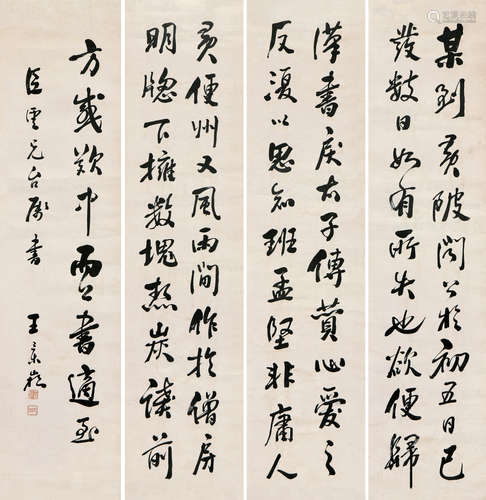 某到黄陂聞公於初五日已
發數日如有所失也欲便歸
漢書戾太子傳贊心愛之
反復以思知班孟堅非庸人
黄便州又風雨間作於僧房
明牕下擁數塊熱炭讀前
方感歎中而公書適至
臣雲兄台屬書
王景